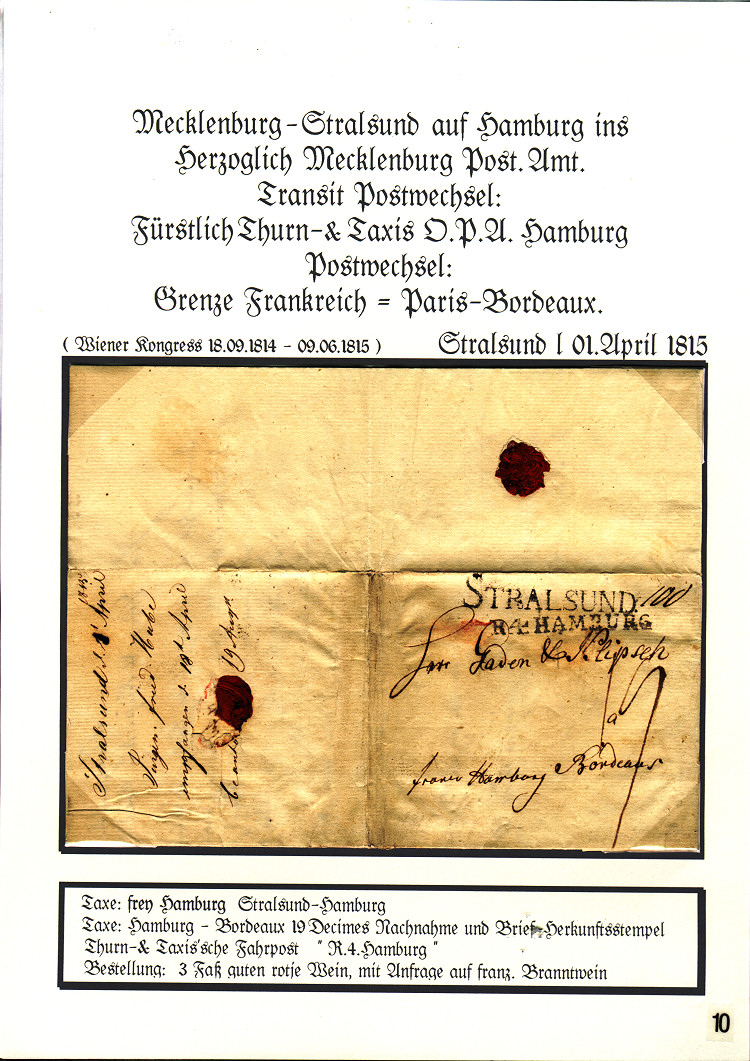 Mecklenburg-Stralsund auf Hamburg ins
Herzoglich Mecklenburg Post. Amt.
Transit Postwechsel:
Fürstlich Thurn-& Taxis O.P.A. Hamburg
Postwechsel:
Grenze Frankreich = Paris-Bordeaux.
( Wiener Kongress 18.09.1814 - 09.06.1815 )
Stralsund l 01.April 1815
1815
Stralsund d. 1 April
empfangen d. 18 April
19 Augt
STRALSUND.
R.4. HAMBURG
Herr Gaden & Klipsch
a
Bordeaux
franco Hamburg
Taxe: frey Hamburg Stralsund-Hamburg
Taxe: Hamburg - Bordeaux 19 Decimes Nachnahme und Brief-Herkunftsstempel
Thurn-& Taxis'sche Fahrpost " R.4.Hamburg "
Bestellung: 3 Faß guten rotje Wein, mit Anfrage auf franz. Branntwein
10